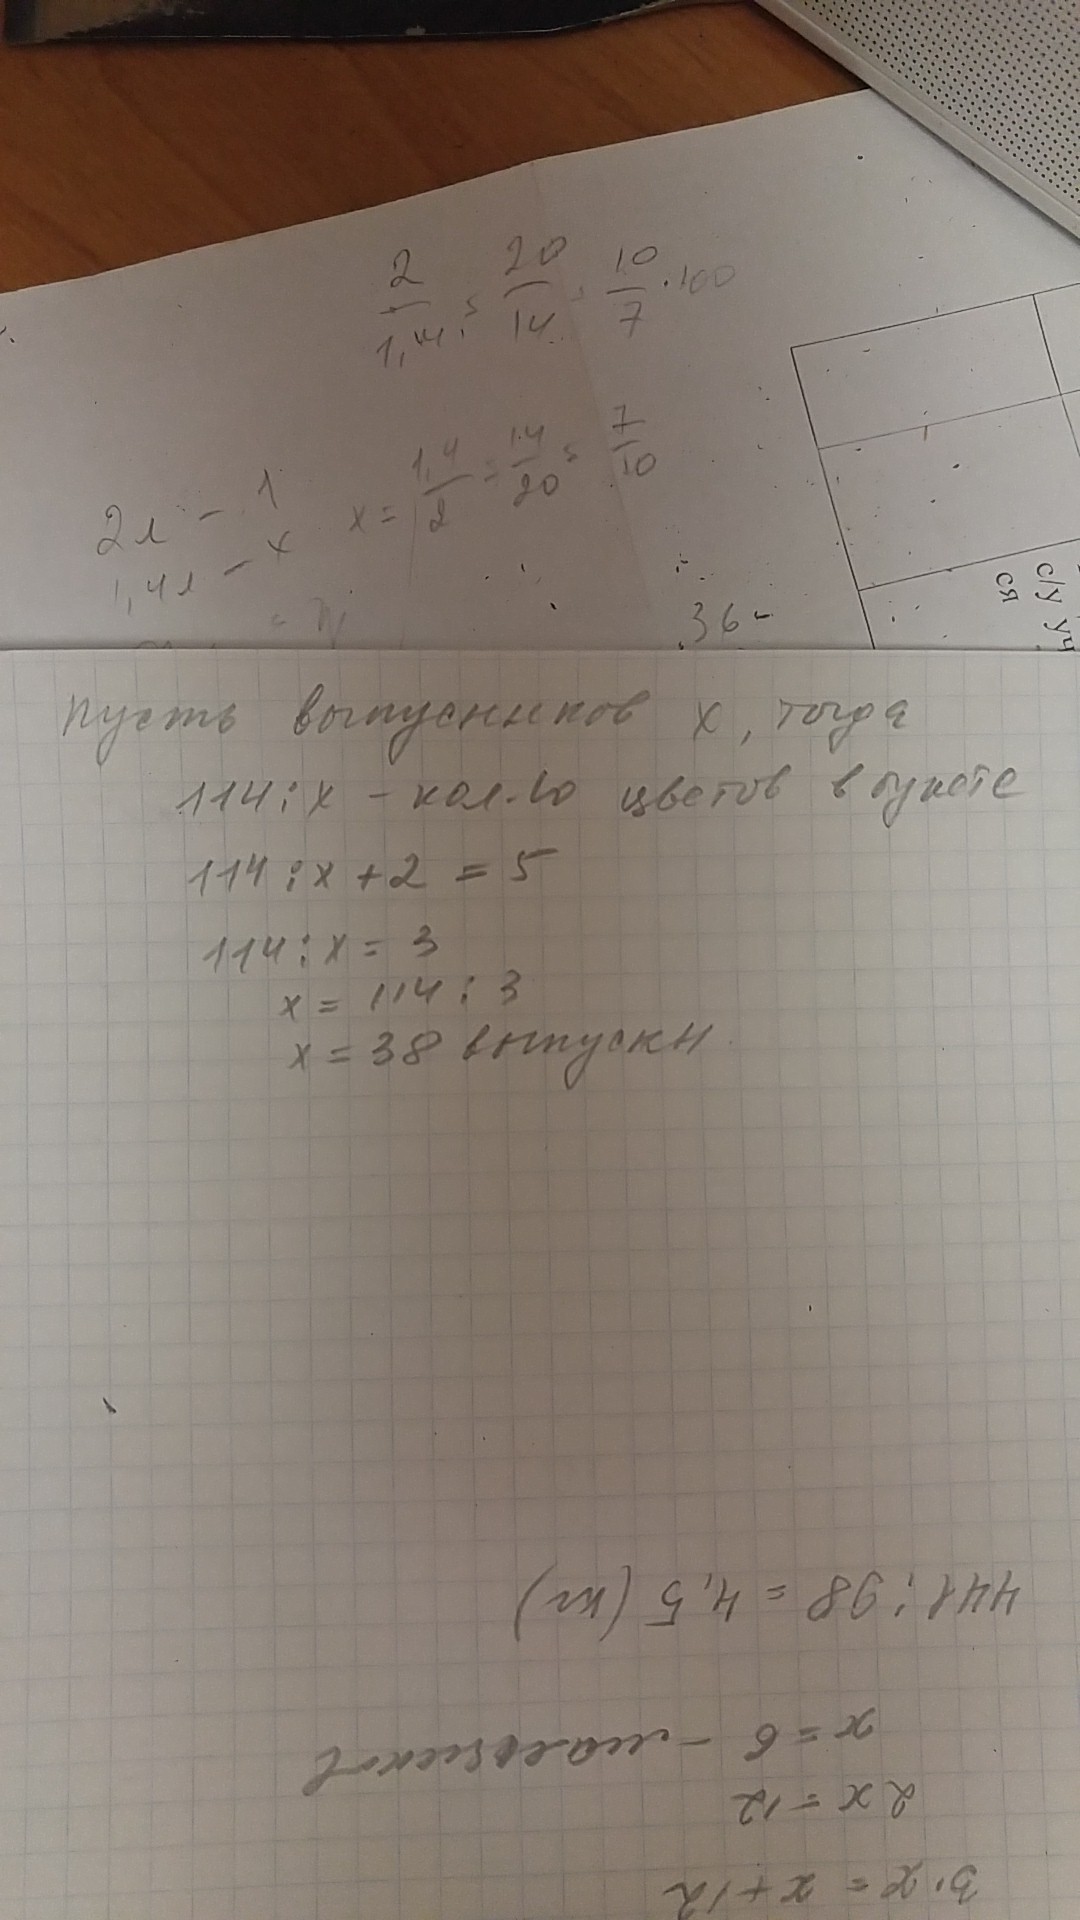 2/1,4 = 20/14 = 10/7 · 100
2л - 1 x = 1,4/2 = 14/20 = 7/10
1,4л - x
36-
с/у уч
ся
Пусть выпусников x, тогда
114 : x - кол-во цветов в букете
114 : x + 2 = 5
114 : x = 3
x = 114 : 3
x = 38 выпускн.
3·x = x + 12
2x = 12
x = 6 - мальчиков
441 : 98 = 4,5 (кг)